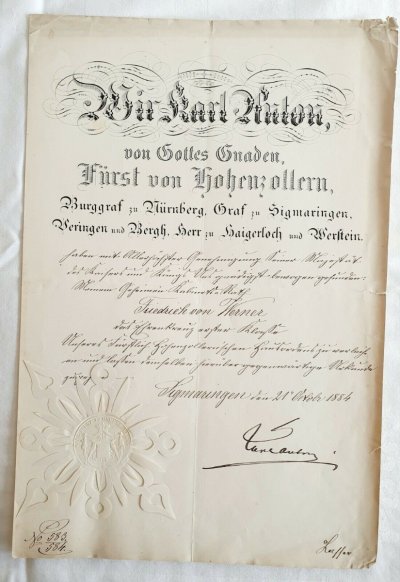 Wir Karl Anton,
von Gottes Gnaden,
Fürst von Hohenzollern,
Burggraf zu Nürnberg, Graf zu Sigmaringen,
Veringen und Bergh, Herr zu Haigerloch und Werstein.
haben mit Allerhöchster Genehmigung Seiner Majestät
des Kaisers und Königs Uns gnädigst bewogen gefunden:
Unserem Geheimen Kabinets-Rath
Friedrich von Werner
das Ehrenkreuz erster Klasse
Unseres Fürstlich Hohenzollernschen Hausordens zu verleihen
und lassen demselben hierüber gegenwärtige Urkunde
Sigmaringen den 21 1884
Karl Anton
No 583
584